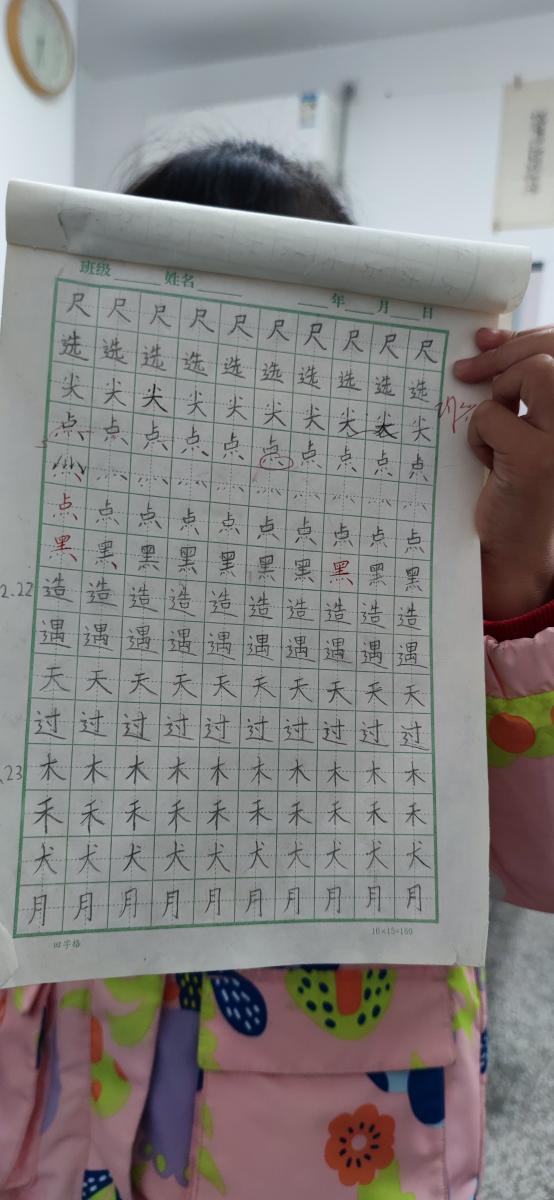 班级 姓名 年 月 日
尺尺尺尺尺尺尺尺尺尺
选选选选选选选选选选
尖尖尖尖尖尖尖尖尖尖
点点点点点点点点点点
灬灬灬灬灬灬灬灬灬灬
点点点点点点点点点点
黑黑黑黑黑黑黑黑黑黑
2.22 造造造造造造造造造造
遇遇遇遇遇遇遇遇遇遇
天天天天天天天天天天
过过过过过过过过过过
.23 木木木木木木木木木木
禾禾禾禾禾禾禾禾禾禾
犬犬犬犬犬犬犬犬犬犬
月月月月月月月月月月
田字格 10×15=150